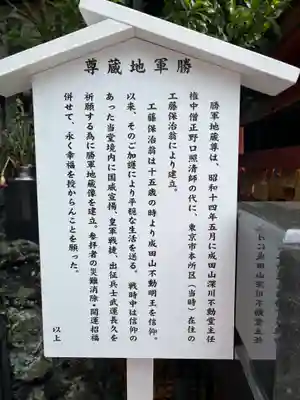 勝軍地蔵尊
勝軍地蔵尊は、昭和十四年五月に成田山深川不動堂主任
権中僧正野口照清師の代に、東京市本所区(当時)在住の
工藤保治翁により建立。
工藤保治翁は十五歳の時より成田山不動明王を信仰。
以来、そのご加護により平穏な生活を送る。戦時中は信仰の
あった当堂境内に国威宣揚、皇軍戦捷、出征兵士武運長久を
祈願する為に勝軍地蔵像を建立。参拝者の災難消除・開運招福
併せて、永く幸福を授からんことを願った。
以上